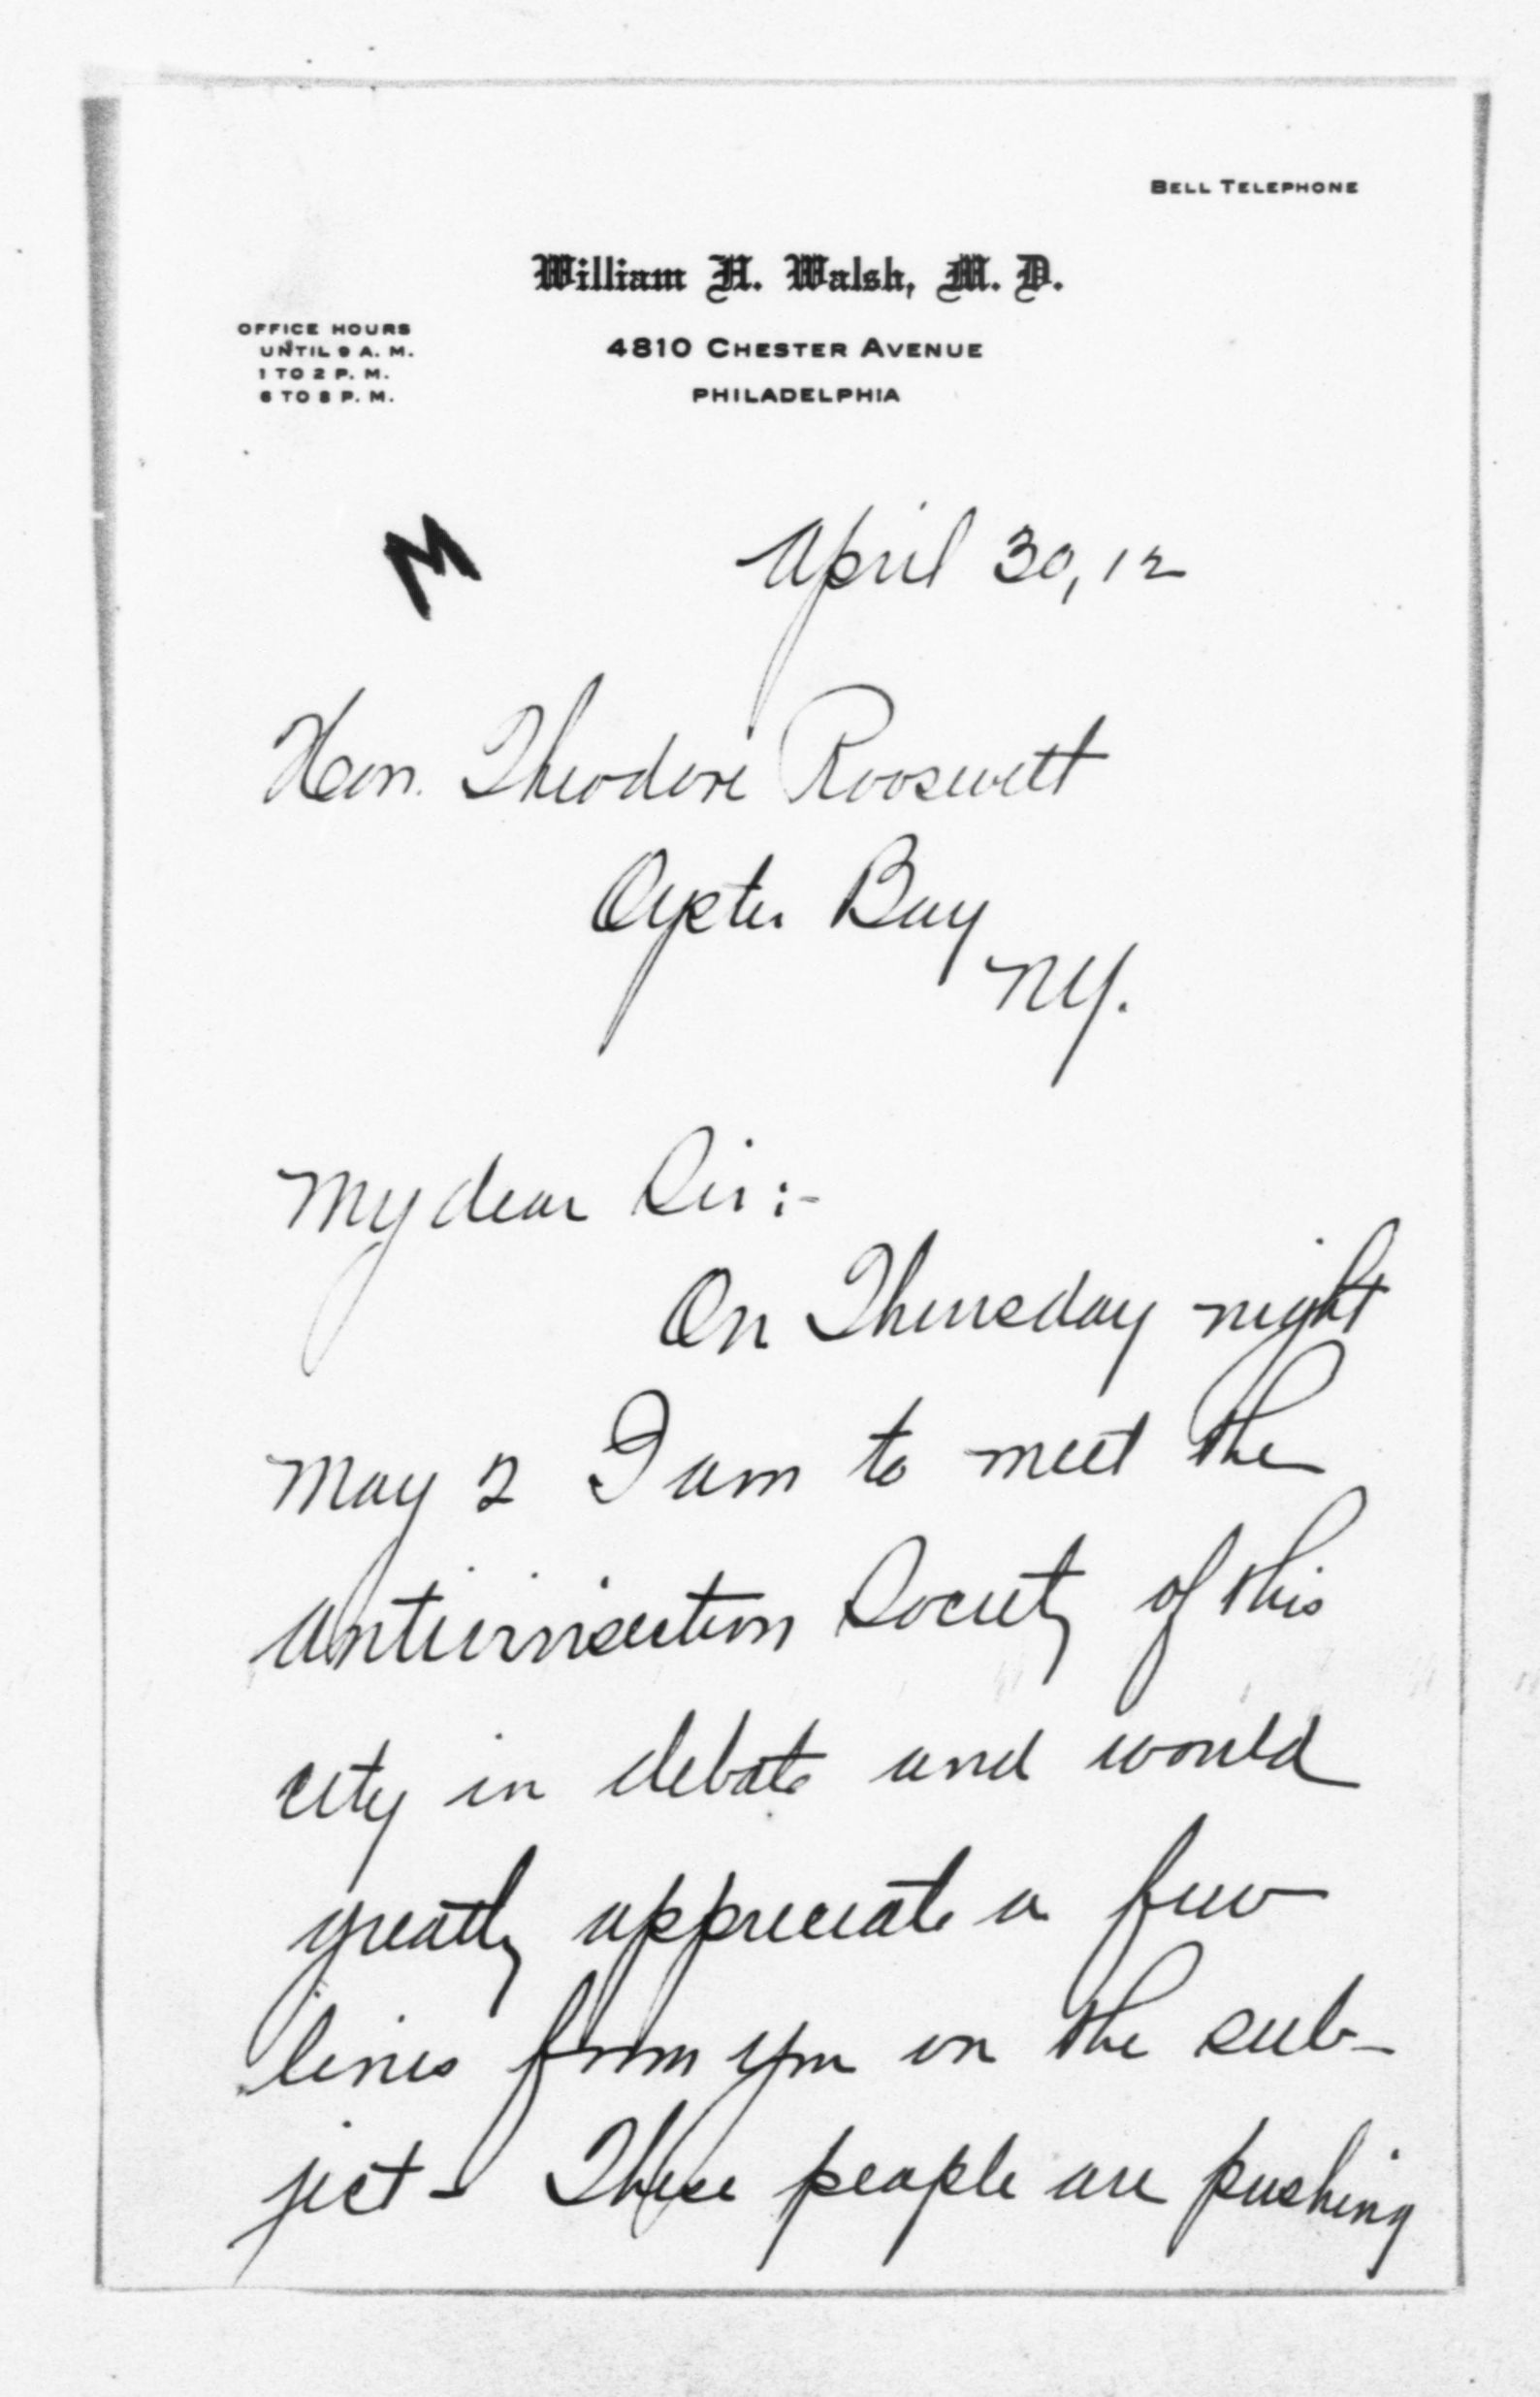 BELL TELEPHONE
William H. Walsh, M. D.
OFFICE HOURS
UNTIL 9 A. M.
1 TO 2 P. M.
6 TO 8 P. M.
4810 CHESTER AVENUE
PHILADELPHIA
M
April 30, 12
Hon. Theodore Roosevelt
Oyster Bay
NY.
My dear Sir:-
On Thursday night
May 2 I am to meet the
Antivivisection Society of this
city in debate and would
greatly appreciate a few
lines from you on the sub-
ject - These people are pushing